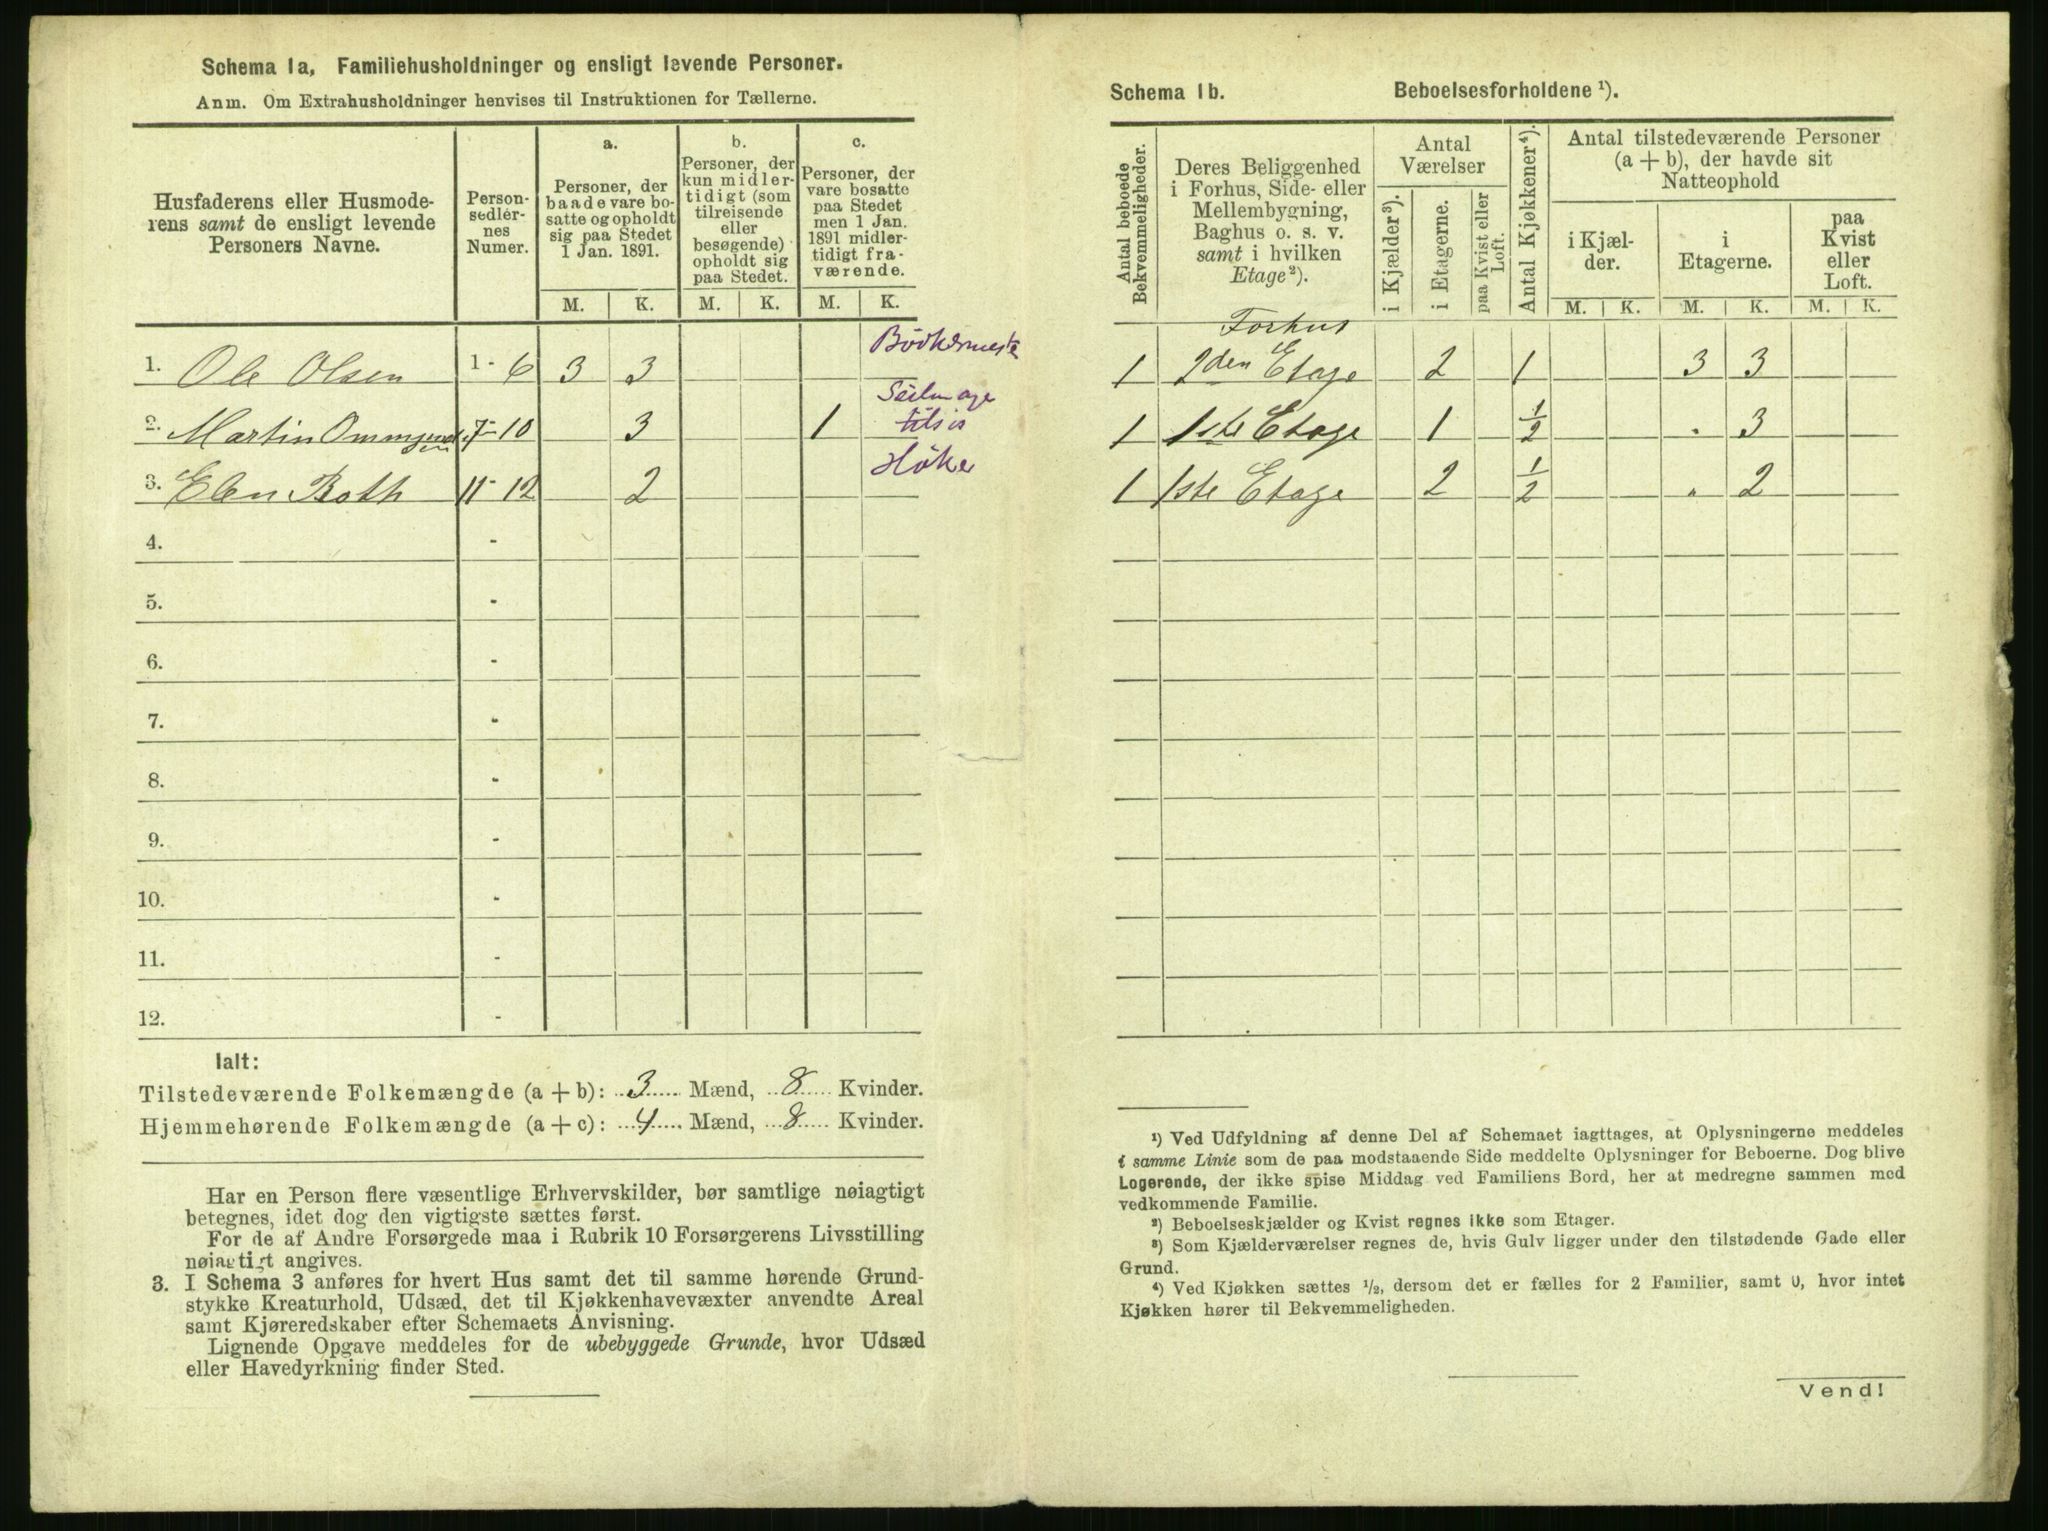 Schema 1a, Familiehusholdninger og ensligt levende Personer.
Anm. Om Extrahusholdninger henvises til Instruktionen for Tællerne.
Husfaderens eller Husmoderens samt de ensligt levende Personers Navne.
Personsedlernes Numer.
a.
Personer, der baade vare bosatte og opholdt sig paa Stedet 1 Jan. 1891.
b.
Personer, der kun midlertidigt (som tilreisende eller besøgende) opholdt sig paa Stedet.
c.
Personer, der vare bosatte paa Stedet men 1 Jan. 1891 midlertidigt fraværende.
M. K. M. K. M. K.
Bödkermest
1. Ole Olsen 1 - 6 3 3
Seilmage
2. Martin 7 - 10 3 1 tilsis
Höker
3. Elen Both 11 - 12 2
4. -
5. -
6. -
7. -
8. -
9. -
10. -
11. -
12. -
Ialt:
Tilstedeværende Folkemængde (a + b): 3 Mænd, 8 Kvinder.
Hjemmehørende Folkemængde (a + c): 4 Mænd, 8 Kvinder.
Har en Person flere væsentlige Erhvervskilder, bør samtlige nøiagtigt
betegnes, idet dog den vigtigste sættes først.
For de af Andre Forsørgede maa i Rubrik 10 Forsørgerens Livsstilling
nøiagtigt angives.
3. I Schema 3 anføres for hvert Hus samt det til samme hørende Grund-
stykke Kreaturhold, Udsæd, det til Kjøkkenhavevæxter anvendte Areal
samt Kjøreredskaber efter Schemaets Anvisning.
Lignende Opgave meddeles for de ubebyggede Grunde, hvor Udsæd
eller Havedyrkning finder Sted.
Schema 1b. Beboelsesforholdene ¹).
Antal beboede Bekvemmeligheder.
Deres Beliggenhed i Forhus, Side- eller Mellembygning, Baghus o. s. v. samt i hvilken Etage ²).
Antal Værelser
i Kjælder ³).
i Etagerne.
paa Kvist eller Loft.
Antal Kjøkkener ⁴).
Antal tilstedeværende Personer (a + b), der havde sit Natteophold
i Kjælder.
i Etagerne.
paa Kvist eller Loft.
M. K. M. K. M. K.
Forhus
1 2den Etage 2 1 3 3
1 1ste Etage 1 1/2 " 3
1 1ste Etage 2 1/2 " 2
¹) Ved Udfyldning af denne Del af Schemaet iagttages, at Oplysningerne meddeles
i samme Linie som de paa modstaaende Side meddelte Oplysninger for Beboerne. Dog blive
Logerende, der ikke spise Middag ved Familiens Bord, her at medregne sammen med
vedkommende Familie.
²) Beboelseskjælder og Kvist regnes ikke som Etager.
³) Som Kjælderværelser regnes de, hvis Gulv ligger under den tilstødende Gade eller
Grund.
⁴) Ved Kjøkken sættes ½, dersom det er fælles for 2 Familier, samt 0, hvor intet
Kjøkken hører til Bekvemmeligheden.
Vend!